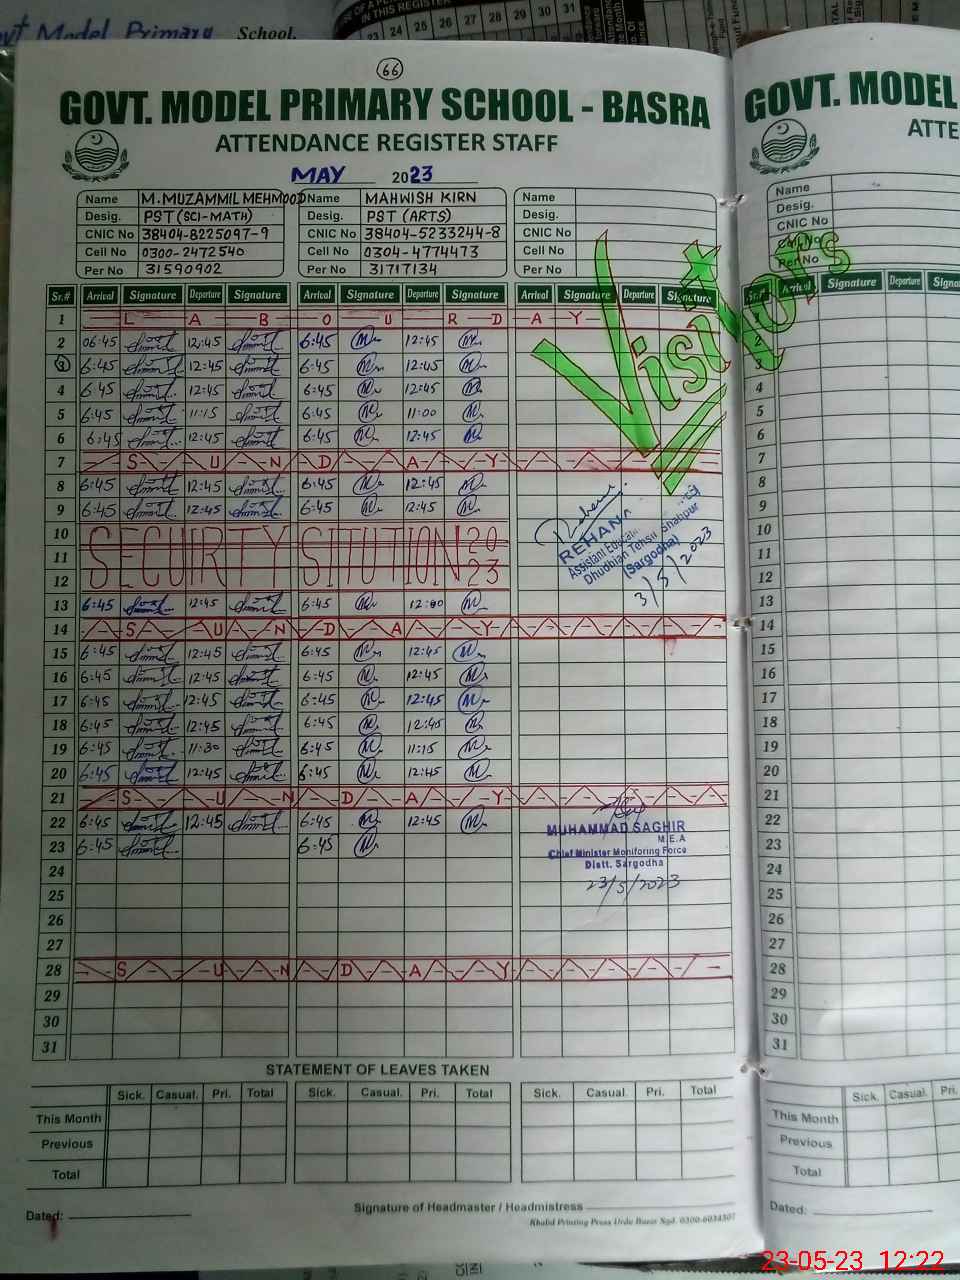 OF A F
IN THIS REGISTER
23 24 25 26 27 28 29 30 31
Govt Model Primary School.
66
GOVT. MODEL PRIMARY SCHOOL - BASRA
GOVT. MODEL
ATTENDANCE REGISTER STAFF
ATTE
MAY 2023
Name M.MUZAMMIL MEHMOOD Name MAHWISH KIRN Name
Desig. PST (SCI-MATH) Desig. PST (ARTS) Desig.
CNIC No 38404-8225097-9 CNIC No 38404-5233244-8 CNIC No
Cell No 0300-2472540 Cell No 0304-4774473 Cell No
Per No 31590902 Per No 31717134 Per No
Name
Desig.
CNIC No
Cell No
Per No
Visitor's
Sr.# Arrival Signature Departure Signature Arrival Signature Departure Signature Arrival Signature Departure Signature
Sr.# Arrival Signature Departure Signa
1 LABOUR DAY
2 06:45 12:45 6:45 12:45
3 6:45 12:45 6:45 12:45
4 6:45 12:45 6:45 12:45
5 6:45 11:15 6:45 11:00
6 6:45 12:45 6:45 12:45
7 SUNDAY
8 6:45 12:45 6:45 12:45
9 6:45 12:45 6:45 12:45
10
11 SECUIRTY SITUTION 2023
12
REHANA
Assistant Educat
Dhudhian Tehsil Shahpur
(Sargodha)
3/5/2023
13 6:45 12:45 6:45 12:00
14 SUNDAY
15 6:45 12:45 6:45 12:45
16 6:45 12:45 6:45 12:45
17 6:45 12:45 6:45 12:45
18 6:45 12:45 6:45 12:45
19 6:45 11:30 6:45 11:15
20 6:45 12:45 6:45 12:45
21 SUNDAY
22 6:45 12:45 6:45 12:45
23 6:45 6:45
MUHAMMAD SAGHIR
M.E.A
Chief Minister Monitoring Force
Distt. Sargodha
23/5/2023
24
25
26
27
28 SUNDAY
29
30
31
1
2
3
4
5
6
7
8
9
10
11
12
13
14
15
16
17
18
19
20
21
22
23
24
25
26
27
28
29
30
31
STATEMENT OF LEAVES TAKEN
Sick. Casual. Pri. Total Sick. Casual. Pri. Total Sick. Casual. Pri. Total
This Month
Previous
Total
Sick. Casual. Pri.
This Month
Previous
Total
Dated:
Signature of Headmaster / Headmistress
Khalid Printing Press Urdu Bazar Sgd. 0300-6034507
Dated:
23-05-23 12:22